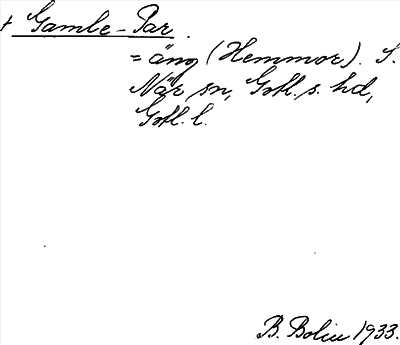 + Gamle-Par.
= äng (Hemmor). S.
När sn, Gotl. s. hd,
Gotl. l.
B. Bolin 1933.